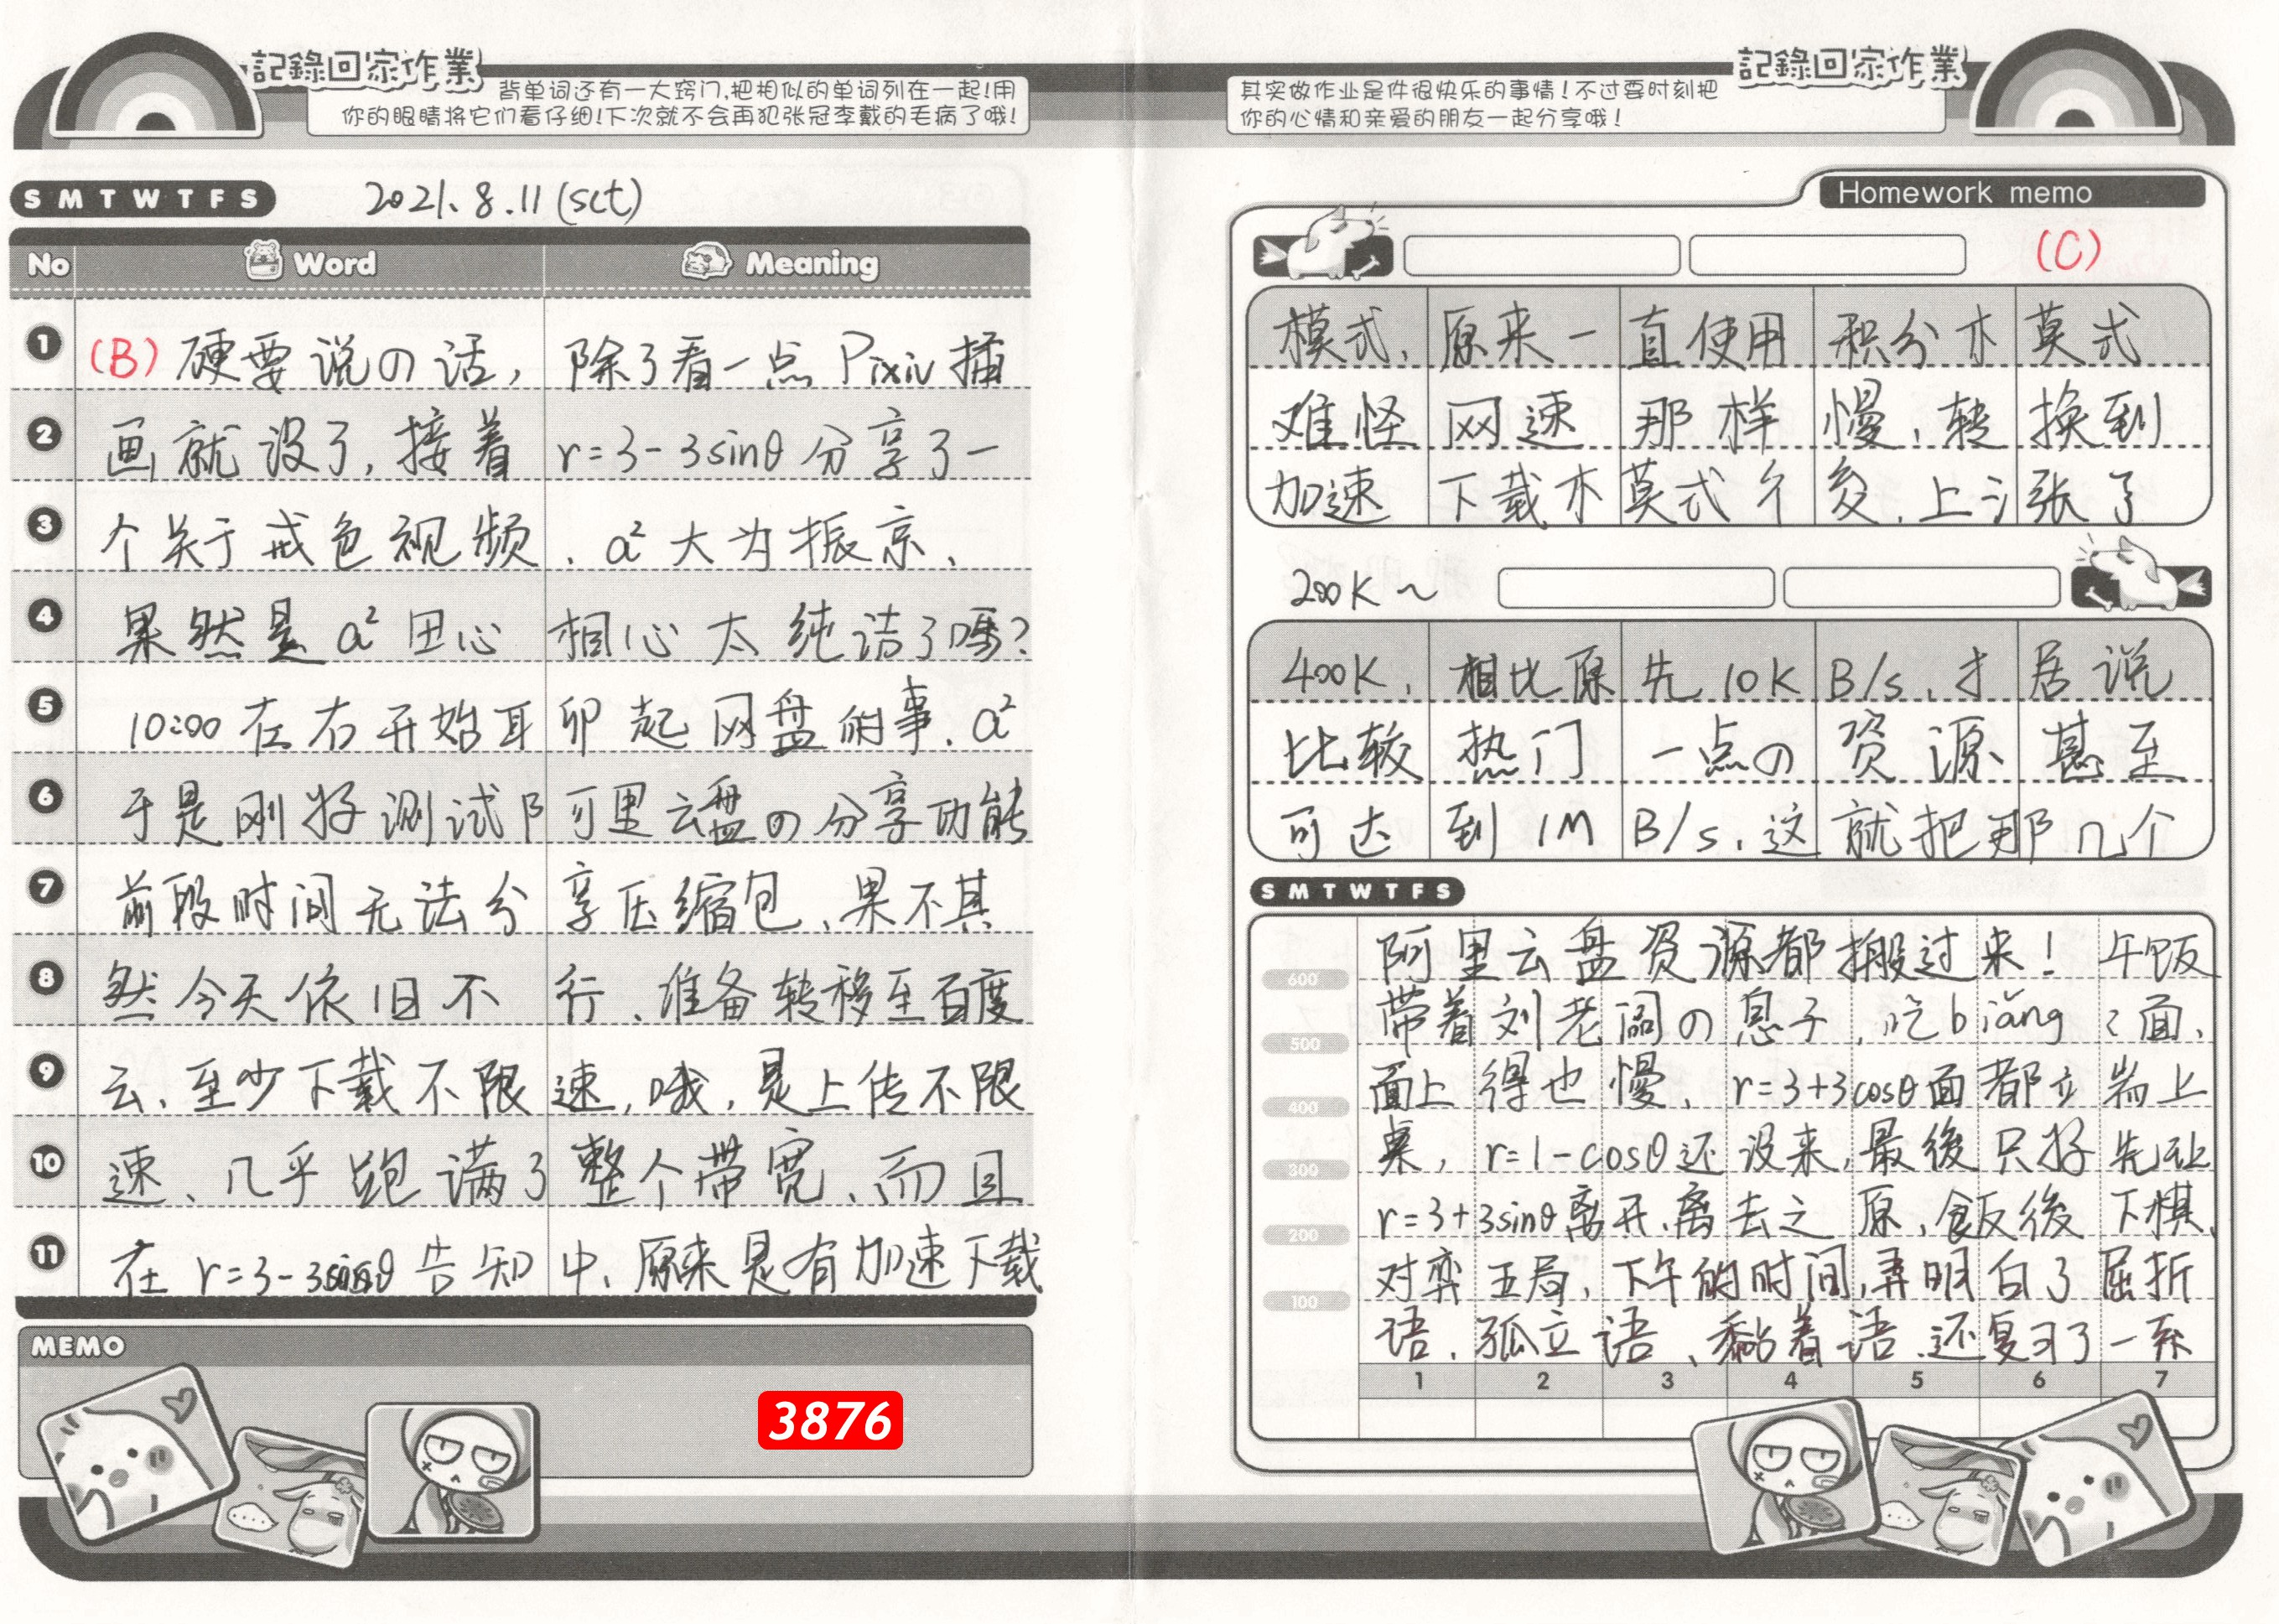 記錄回家作業
背单词还有一大窍门,把相似的单词列在一起!用
你的眼睛将它们看仔细!下次就不会再犯张冠李戴的毛病了哦!
S M T W T F S
2021.8.11(sct)
No Word Meaning
1 (B) 硬要说の话,除了看一点Pixiv插
2 画就没了,接着r=3-3sinθ分享了一
3 个关于戒色视频.a²大为振京、
4 果然是a²田心相心太纯洁了吗?
5 10:00在右开始耳卯起网盘的事.a²
6 于是刚好测试阝可里云盘の分享功能
7 前段时间无法分享压缩包、果不其
8 然今天依旧不行、准备转移至百度
9 云、至少下载不限速,哦,是上传不限
10 速、几乎跑满了整个带宽、而且
11 在r=3-3sinθ告知中、原来是有加速下载
MEMO
3876
記錄回家作業
其实做作业是件很快乐的事情!不过要时刻把
你的心情和亲爱的朋友一起分享哦!
Homework memo
(C)
模式、原来一直使用积分木莫式
难怪网速那样慢、转换到
加速下载木莫式个夋、上氵张了
200K~
400K、相比原先10KB/s、扌居说
比较热门一点の资源甚至
可达到1MB/s、这就把那几个
S M T W T F S
阿里云盘资源都搬过来!午饭
600
带着刘老阔の息子,吃biǎng〻面、
500
面上得也慢、r=3+3cosθ面都立耑上
400
桌,r=1-cosθ还没来,最後只好先让
300
r=3+3sinθ离开、离去之原,飯後下棋、
200
对弈五局、下午的时间,弄明白了屈折
100
语、孤立语、黏着语.还复习了一系
1 2 3 4 5 6 7